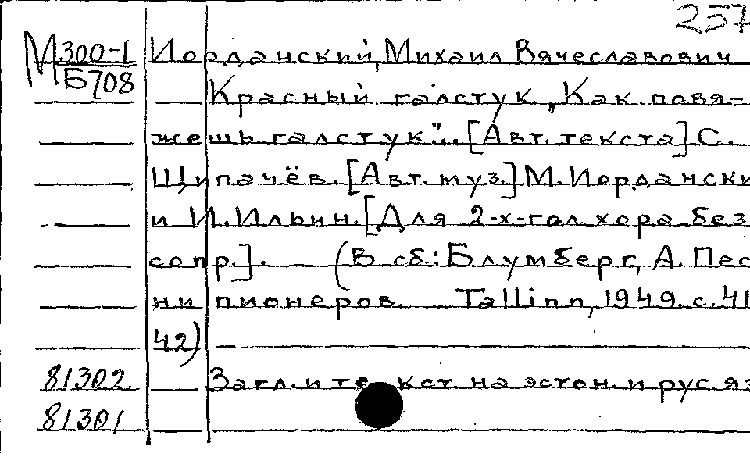 257
М 300-1 Иорданский, Михаил Вячеславович
Б708 Красный галстук „Как повя-
жешь галстук". [Авт. текста] С.
Щипачёв. [Авт. муз.] М. Иордански
и И. Ильин. [Для 2-х-гол хора без
сопр.]. (В сб: Блумберг, А. Пес
ни пионеров. Tallinn, 1949. с. 41
42)
81302 Загл. и текст на эстон. и рус. яз
81301